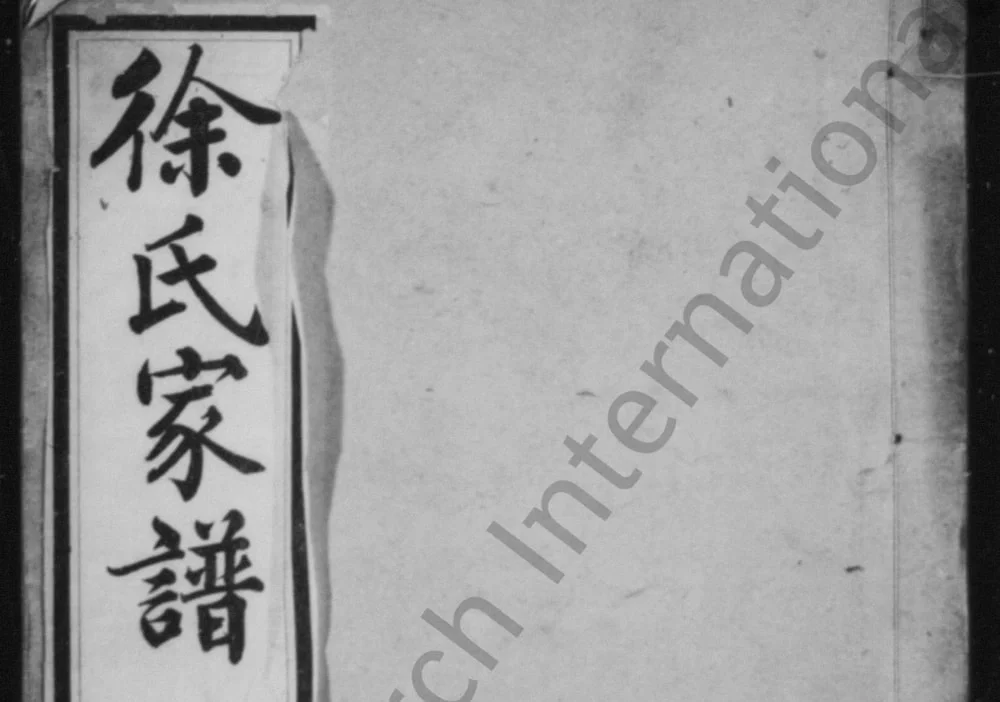 徐氏家譜
rch Internationa